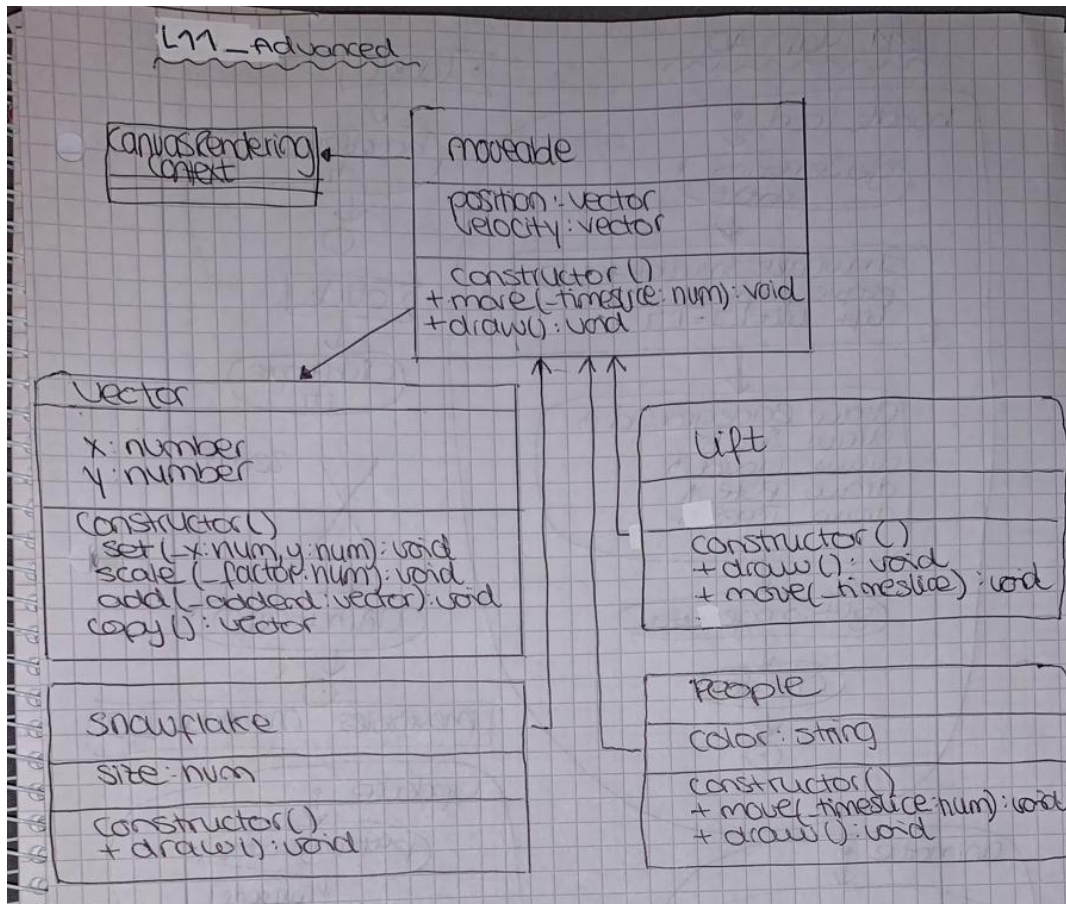 L11_Advanced
CanvasRendering
Context
moveable
position: vector
velocity: vector
constructor()
+ move(_timeslice: num): void
+ draw(): void
Vector
x: number
y: number
constructor()
set(_x: num, y: num): void
scale(_factor: num): void
add(_addend: vector): void
copy(): vector
Lift
constructor()
+ draw(): void
+ move(_timeslice): void
snowflake
size: num
constructor()
+ draw(): void
People
color: string
constructor()
+ move(_timeslice: num): void
+ draw(): void